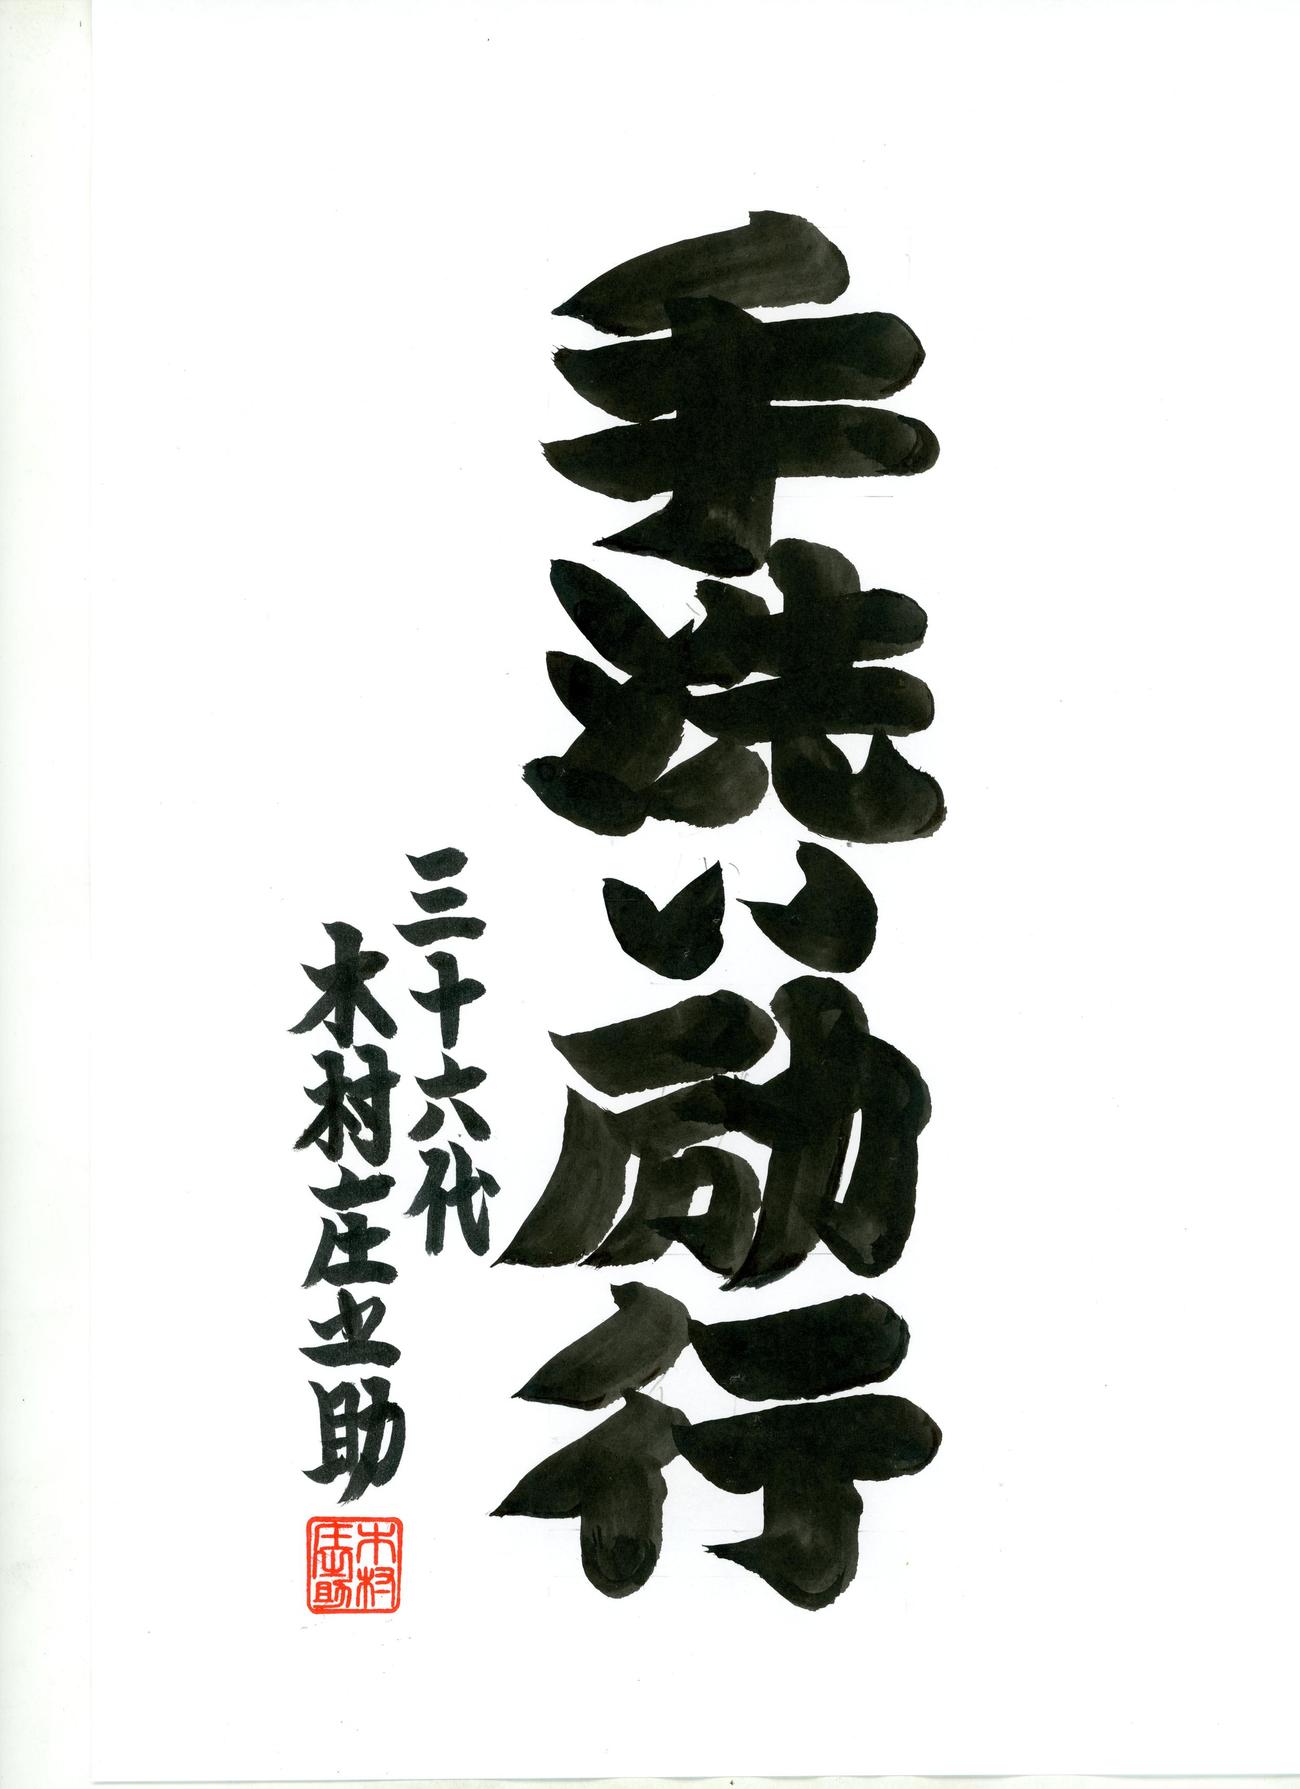 手洗い励行
三十六代
木村庄之助
木村
庄助